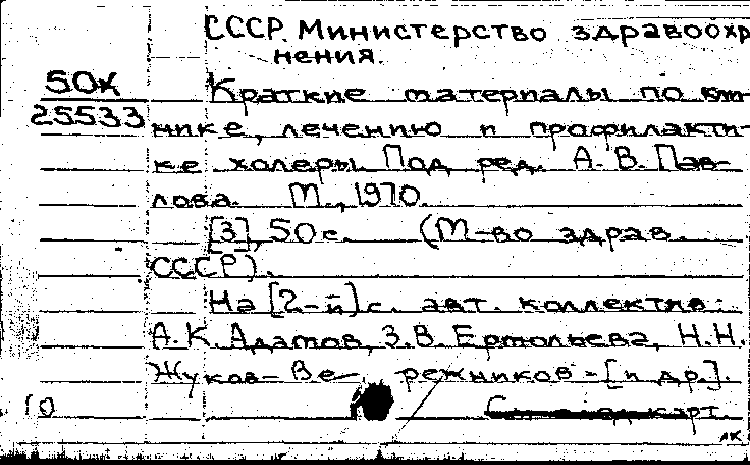 СССР. Министерство здравоохр
нения.
50к
25533
Краткие материалы по кли-
нике, лечению и профилакти-
ке холеры. Под ред. А. В. Пав-
лова. М., 1970.
[3], 50 с. (М-во здрав.
СССР).
На [2-й] с. авт. коллектив:
А. К. Адамов, З. В. Ермольева, Н. Н.
Жуков-Ве режников - [и др.].
10
карт.